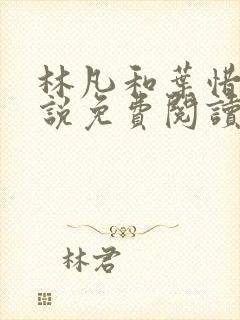 林凡和葉惜
説免費閱讀
林君